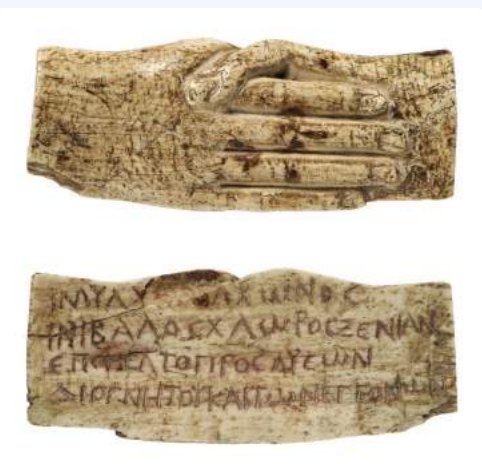 ΙΜΥΛΧ ΛΧΩΝΟϹ
ΙΝΙΒΑΛΟϹΧΛΩΡΟϹΞΕΝΙΑΝ
ΕΠΟΗϹΑΤΟΠΡΟϹΛΥϹΩΝ
ΔΙΟΓΝΗΤΟΥΚΑΙΤΩΝΕΓΓΟΝΩΝ